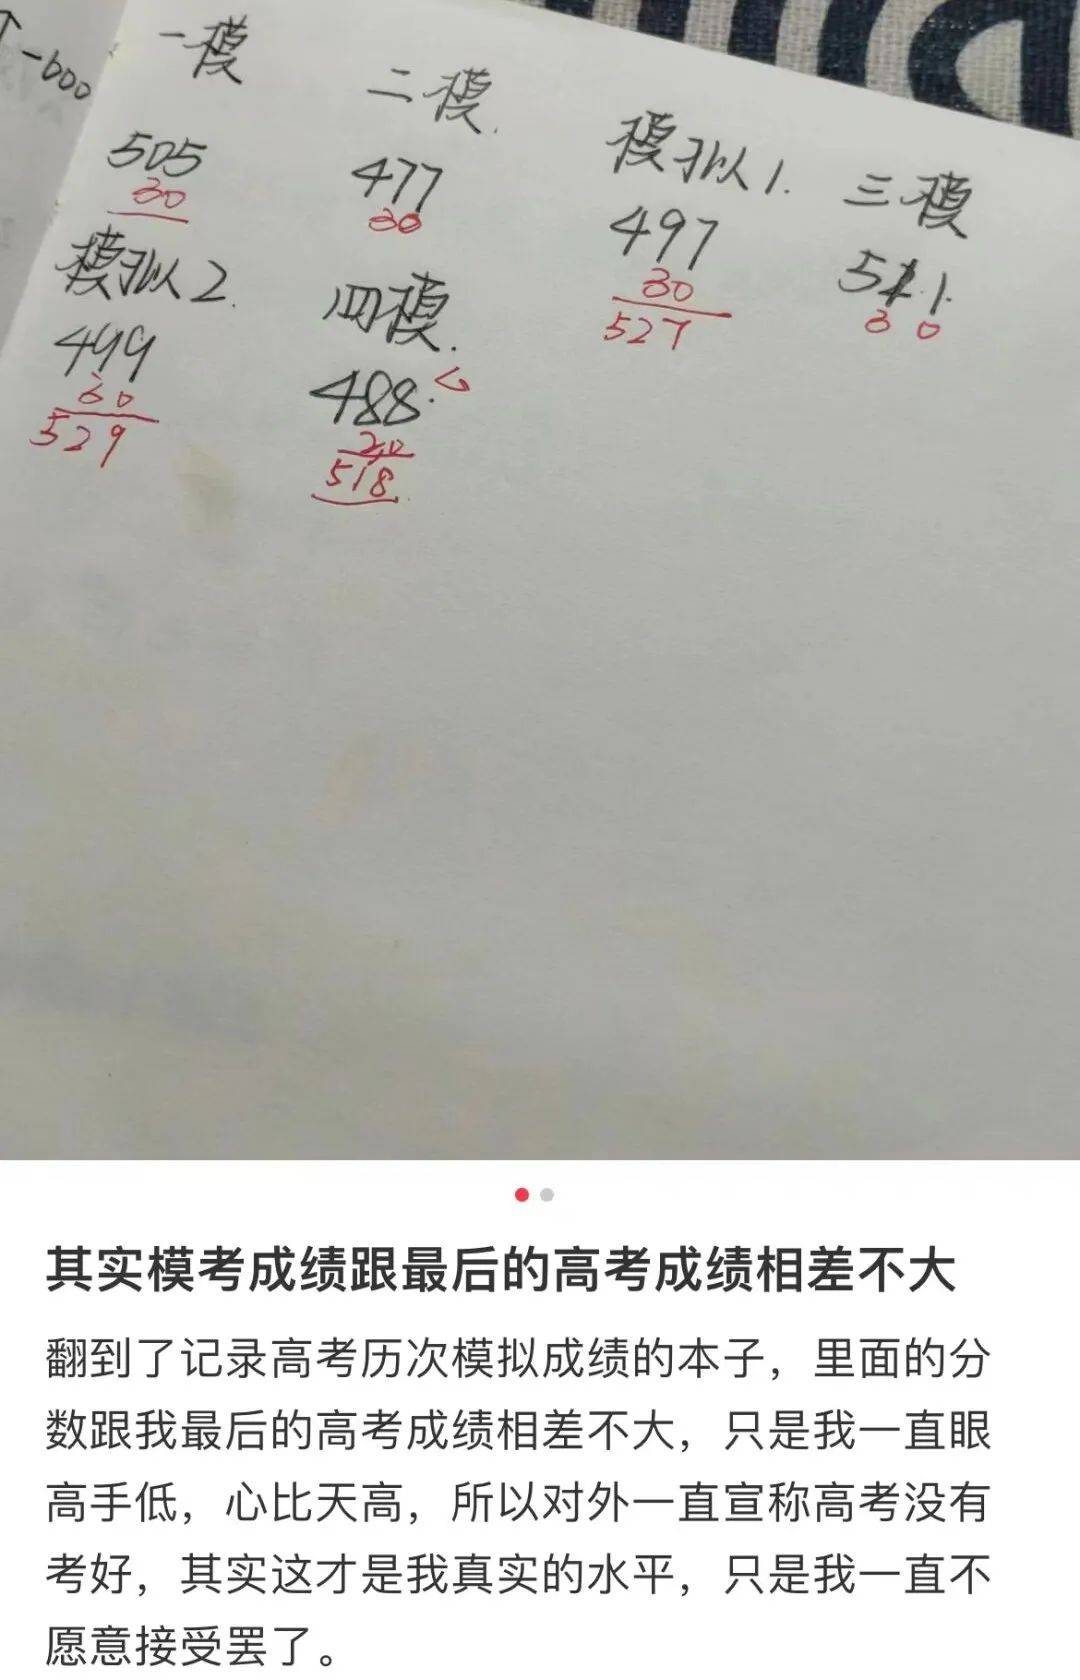 -600
一模
二模.
模拟1.
三模
505
30
477
30
497
30
527
511.
30
模拟2.
499
30
529
四模.
488.
518
其实模考成绩跟最后的高考成绩相差不大
翻到了记录高考历次模拟成绩的本子，里面的分
数跟我最后的高考成绩相差不大，只是我一直眼
高手低，心比天高，所以对外一直宣称高考没有
考好，其实这才是我真实的水平，只是我一直不
愿意接受罢了。